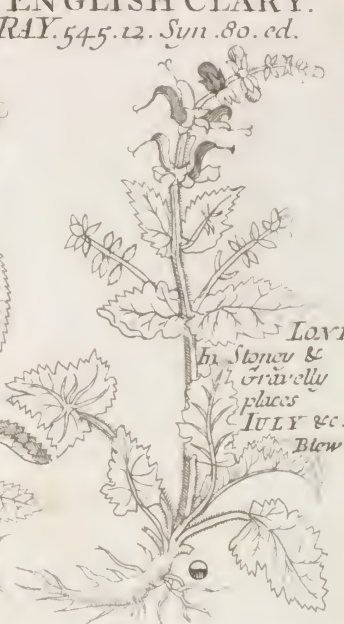 ENGLISH CLARY.
RAY. 545. 12. Syn. 80. ed.
In Stoney &
Gravelly
places
IULY &c.
Blew